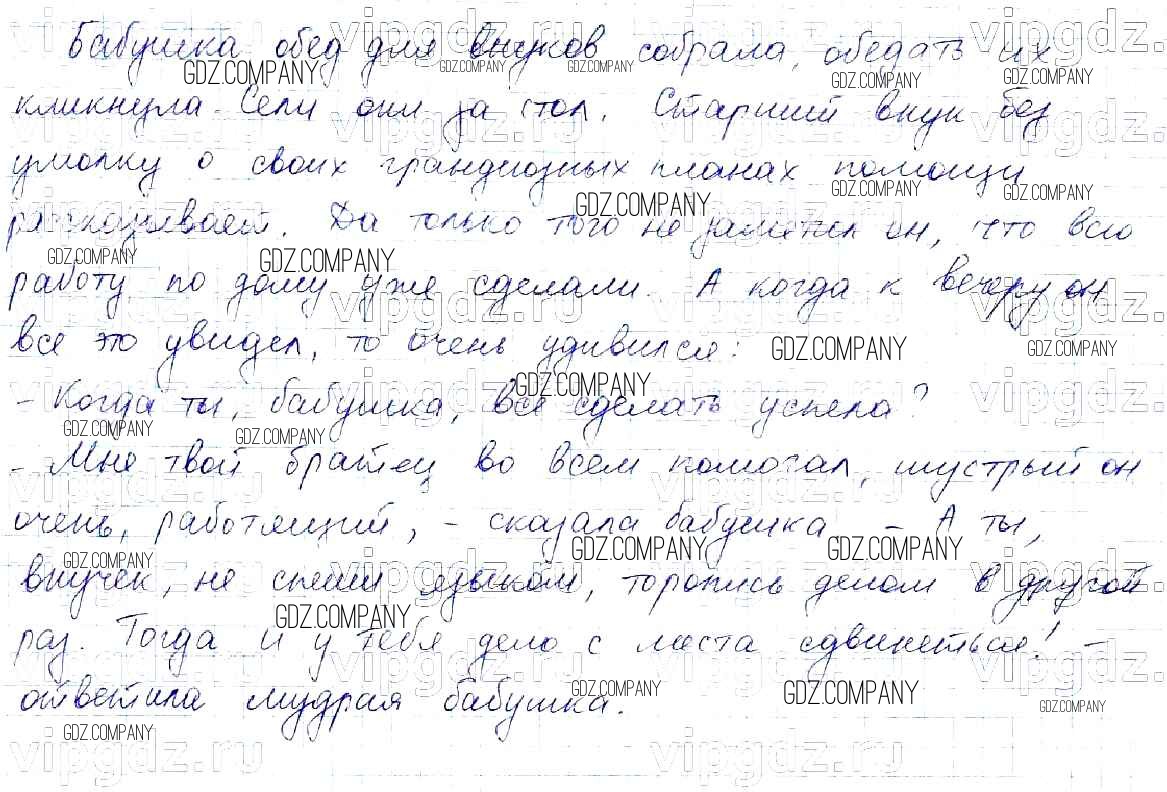 Бабушка обед для внуков собрала, обедать их
кликнула. Сели они за стол. Старший внук без
умолку о своих грандиозных планах помощи
рассказывает. Да только того не заметил он, что всю
работу по дому уже сделали. А когда к вечеру он
все это увидел, то очень удивился:
- Когда ты, бабушка, всё сделать успела?
- Мне твой братец во всем помогал, шустрый он
очень, работящий, - сказала бабушка - А ты,
внучек, не спеши языком, торопись делом в другой
раз. Тогда и у тебя дело с места сдвинеться! -
ответила мудрая бабушка.